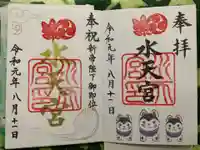 奉拝
水天宮
令和元年八月十一日
奉祝 新帝陛下御即位
水天宮
令和元年八月十一日